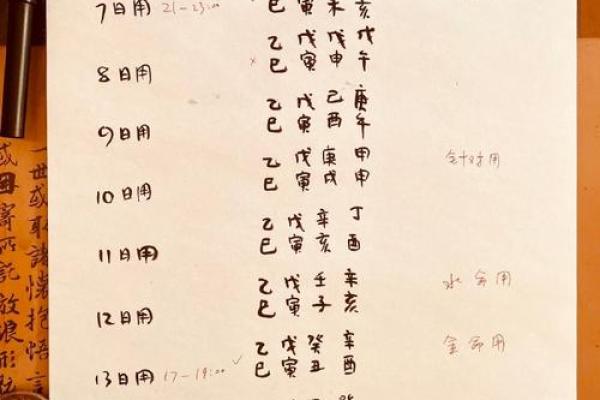 7日用 21-23:00 巳 寅 未 亥
乙 戊 戊 戊
巳 寅 申 午
8日用
乙 戊 己 庚
巳 寅 酉 午
9日用
乙 戊 庚 甲
巳 寅 戌 申
针对用
10日用
乙 戊 辛 丁
巳 寅 亥 酉
11日用
乙 戊 壬 辛
巳 寅 子 亥
水命用
12日用
乙 戊 癸 辛
巳 寅 丑 酉
金命用
13日用 17-19:00
一世或取諸懷抱悟言
或因寄所託放浪形